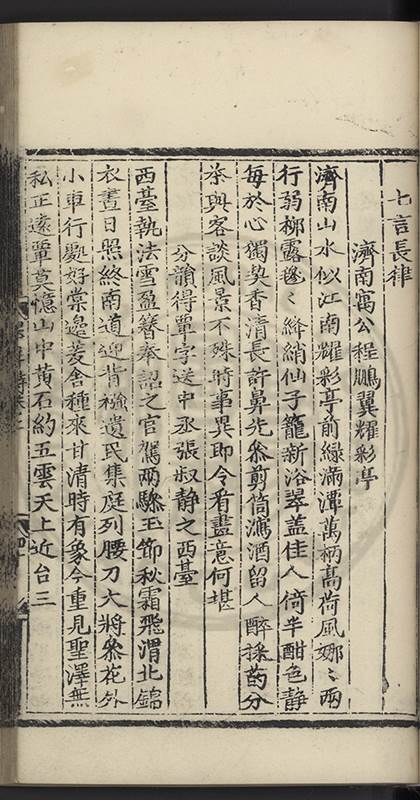 七言長律
濟南寓公程鵬翼耀彩亭
濟南山水似江南耀彩亭前緑滿潭萬柄髙荷風娜〻兩
行弱栁露毿〻綃仙子籠新浴翠盖佳人倚半酣色静
每於心獨契香清長許鼻先叅剪筒瀉酒留人醉採菂分
茶與客談風景不殊時事異即今看畫意何堪
分韻得覃字送中丞張叔静之西䑓
西䑓執法雪盈簮奉詔之官駕兩驂玉節秋霜飛渭北錦
衣晝日照終南道迎胥襁遺民集庭列腰刀大將叅花外
小車行䖏好棠邉茇舎種來甘清時有象今重見聖澤無
私正逺覃莫憶山中黄石約五雲天上近台三